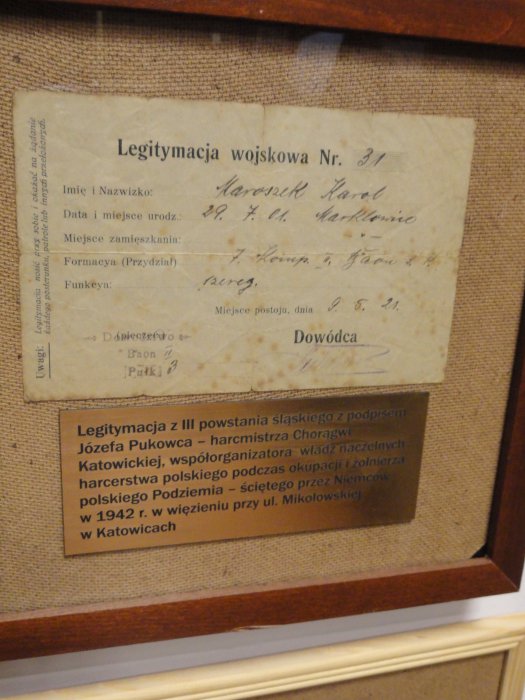 Legitymacja wojskowa Nr. 31
Imię i Nazwizko: Maroszek Karol
Data i miejsce urodz.: 29. 7. 01. Marklowice
Miejsce zamięszkania: - " -
Formacya (Przydział) 7. Komp.
Funkcya: szereg.
Miejsce postoju, dnia 9. 5. 21.
(pieczęć) Dowódca
Baon
[Pułk] 3
Uwagi: Legitymacja nosić przy sobie i okazać na żądanie
każdego posterunku, patrole lub innych przełożonych.
Legitymacja z III powstania śląskiego z podpisem
Józefa Pukowca – harcmistrza Chorągwi
Katowickiej, współorganizatora władz naczelnych
harcerstwa polskiego podczas okupacji i żołnierza
polskiego Podziemia – ściętego przez Niemców
w 1942 r. w więzieniu przy ul. Mikołowskiej
w Katowicach